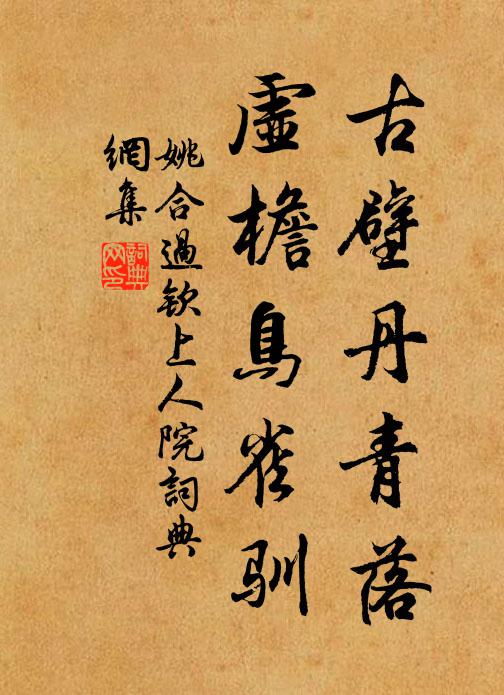 古壁丹青落
虛檐鳥雀馴
姚合過欽上人院詞典
網集
詞典網印